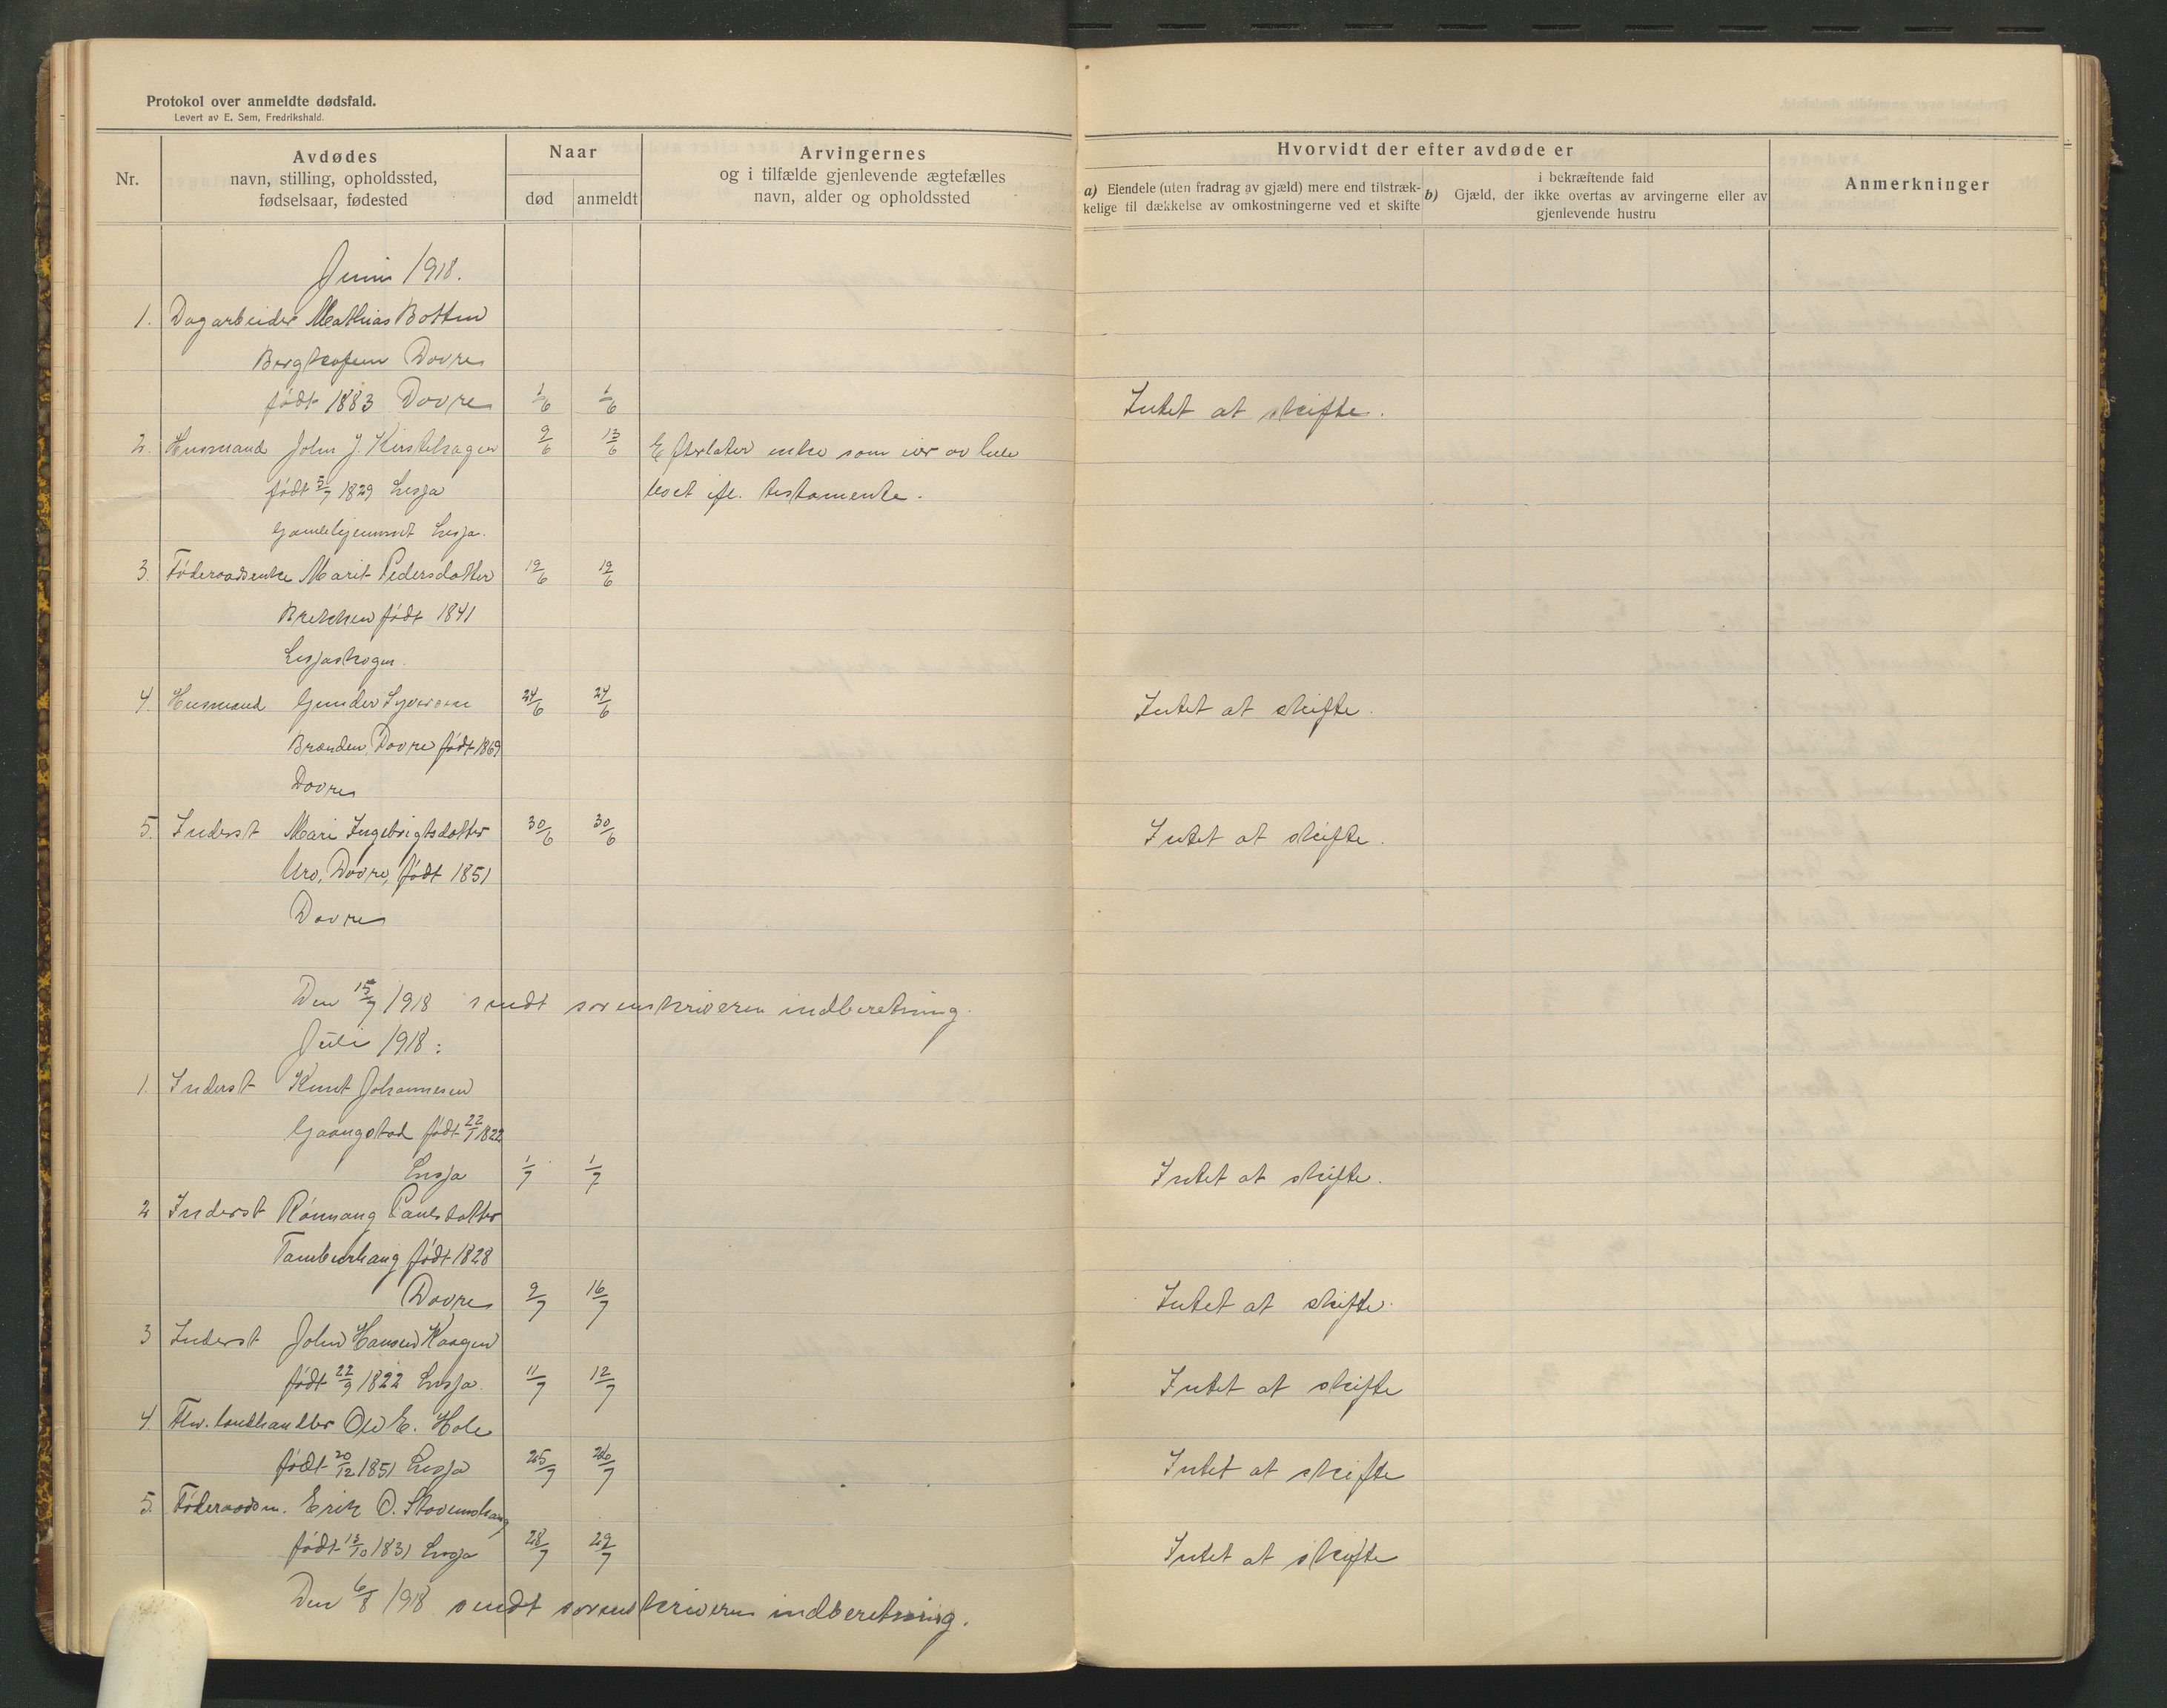 Protokol over anmeldte dødsfald.
Levert av E. Sem, Fredrikshald.
Nr.
Avdødes
navn, stilling, opholdssted,
fødselsaar, fødested
Naar
død
anmeldt
Arvingernes
og i tilfælde gjenlevende ægtefælles
navn, alder og opholdssted
Hvorvidt der efter avdøde er
a) Eiendele (uten fradrag av gjæld) mere end tilstræk-
kelige til dækkelse av omkostningerne ved et skifte
i bekræftende fald
b) Gjæld, der ikke overtas av arvingerne eller av
gjenlevende hustru
Anmerkninger
Juni 1918.
1. Dagarbeider Mathias Botten
Dovre
født 1883 Dovre 1/6 1/6 Intet at skifte.
2. Husmand John J. Kirstihagen 9/6 13/6 Efterlater enke som er av hele
født 5/7 1829 Lesja boet ifl. testamente.
Gamlehjemmet Lesja.
3. Føderaadsenke Marit Pedersdatter 19/6 19/6
født 1841
Lesjaskogen.
4. Husmand Gunder Syversen 24/6 24/6 Intet at skifte.
Brænden, Dovre født 1869
Dovre
5. Inderst Mari Ingebrigtsdatter 30/6 30/6 Intet at skifte.
Uro, Dovre, født 1851
Dovre
Den 15/7 1918 sendt sorenskriveren indberetning.
Juli 1918:
1. Inderst Knut Johannesen
født 22/1 1822
Lesja 1/7 1/7 Intet at skifte.
2 Inderst Rønnaug Paulsdatter
Tamburhaug født 1828
Dovre 9/7 16/7 Intet at skifte.
3 Inderst John Hansen Kaagen
født 22/9 1822 Lesja. 11/7 12/7 Intet at skifte
4. Flv. landhandler Ole E. Hole
født 20/12 1851 Lesja 25/7 26/7 Intet at skifte
5. Føderaadsm. Erik O.
født 13/10 1831 Lesja 28/7 29/7 Intet at skifte
Den 6/8 1918 sendt sorenskriveren indberetning.